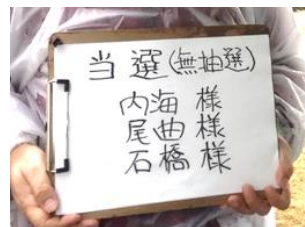 当選(無抽選)
内海 様
尾曲 様
石橋 様